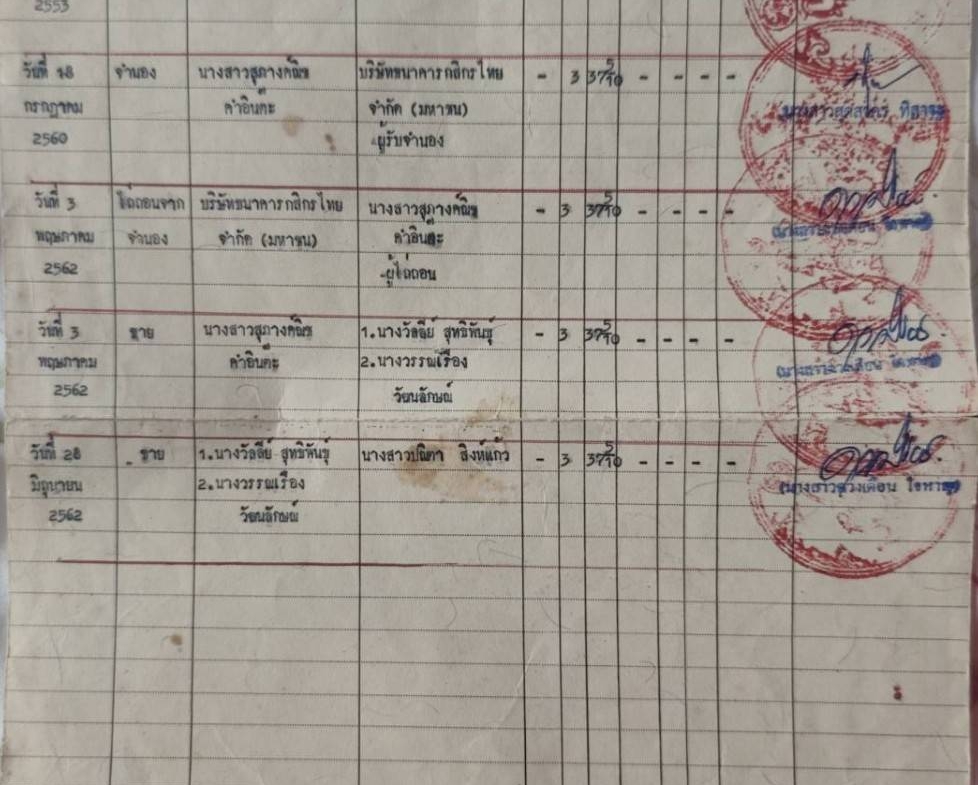 2553
วันที่ 18 จำนอง นางสาวสุภางค์ณิช บริษัทธนาคารกสิกรไทย - 3 37 5/10 - - - -
กรกฎาคม คำอินต๊ะ จำกัด (มหาชน)
2560 ผู้รับจำนอง
วันที่ 3 ไถ่ถอนจาก บริษัทธนาคารกสิกรไทย นางสาวสุภางค์ณิช - 3 37 5/10 - - - -
พฤษภาคม จำนอง จำกัด (มหาชน) คำอินต๊ะ
2562 ผู้ไถ่ถอน
วันที่ 3 ขาย นางสาวสุภางค์ณิช 1.นางวัลลีย์ สุทธิพันธุ์ - 3 37 5/10 - - - -
พฤษภาคม คำอินต๊ะ 2.นางวรรณเรือง
2562 วัยนลักษณ์
วันที่ 28 ขาย 1.นางวัลลีย์ สุทธิพันธุ์ นางสาวปณิตา สิงห์แก้ว - 3 37 5/10 - - - -
มิถุนายน 2.นางวรรณเรือง (นางสาวดวงเดือน
2562 วัยนลักษณ์